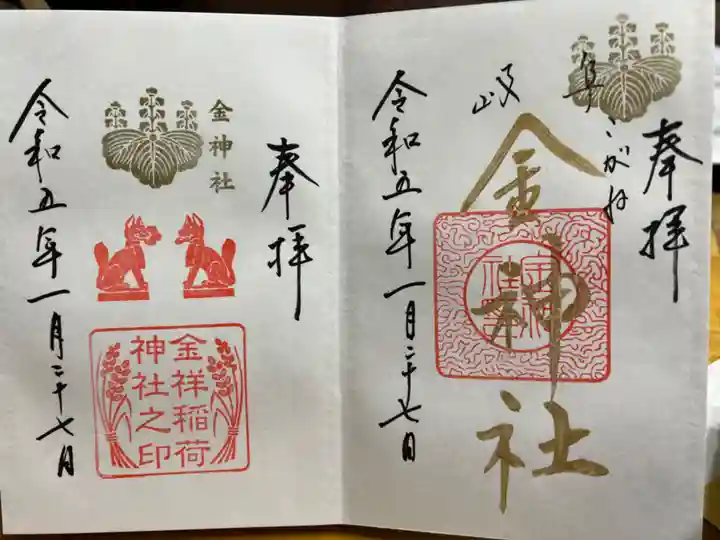 奉拝
岐阜
こがね
金神社
令和五年一月二十七日
奉拝
金神社
金祥稲荷
神社之印
令和五年一月二十七日